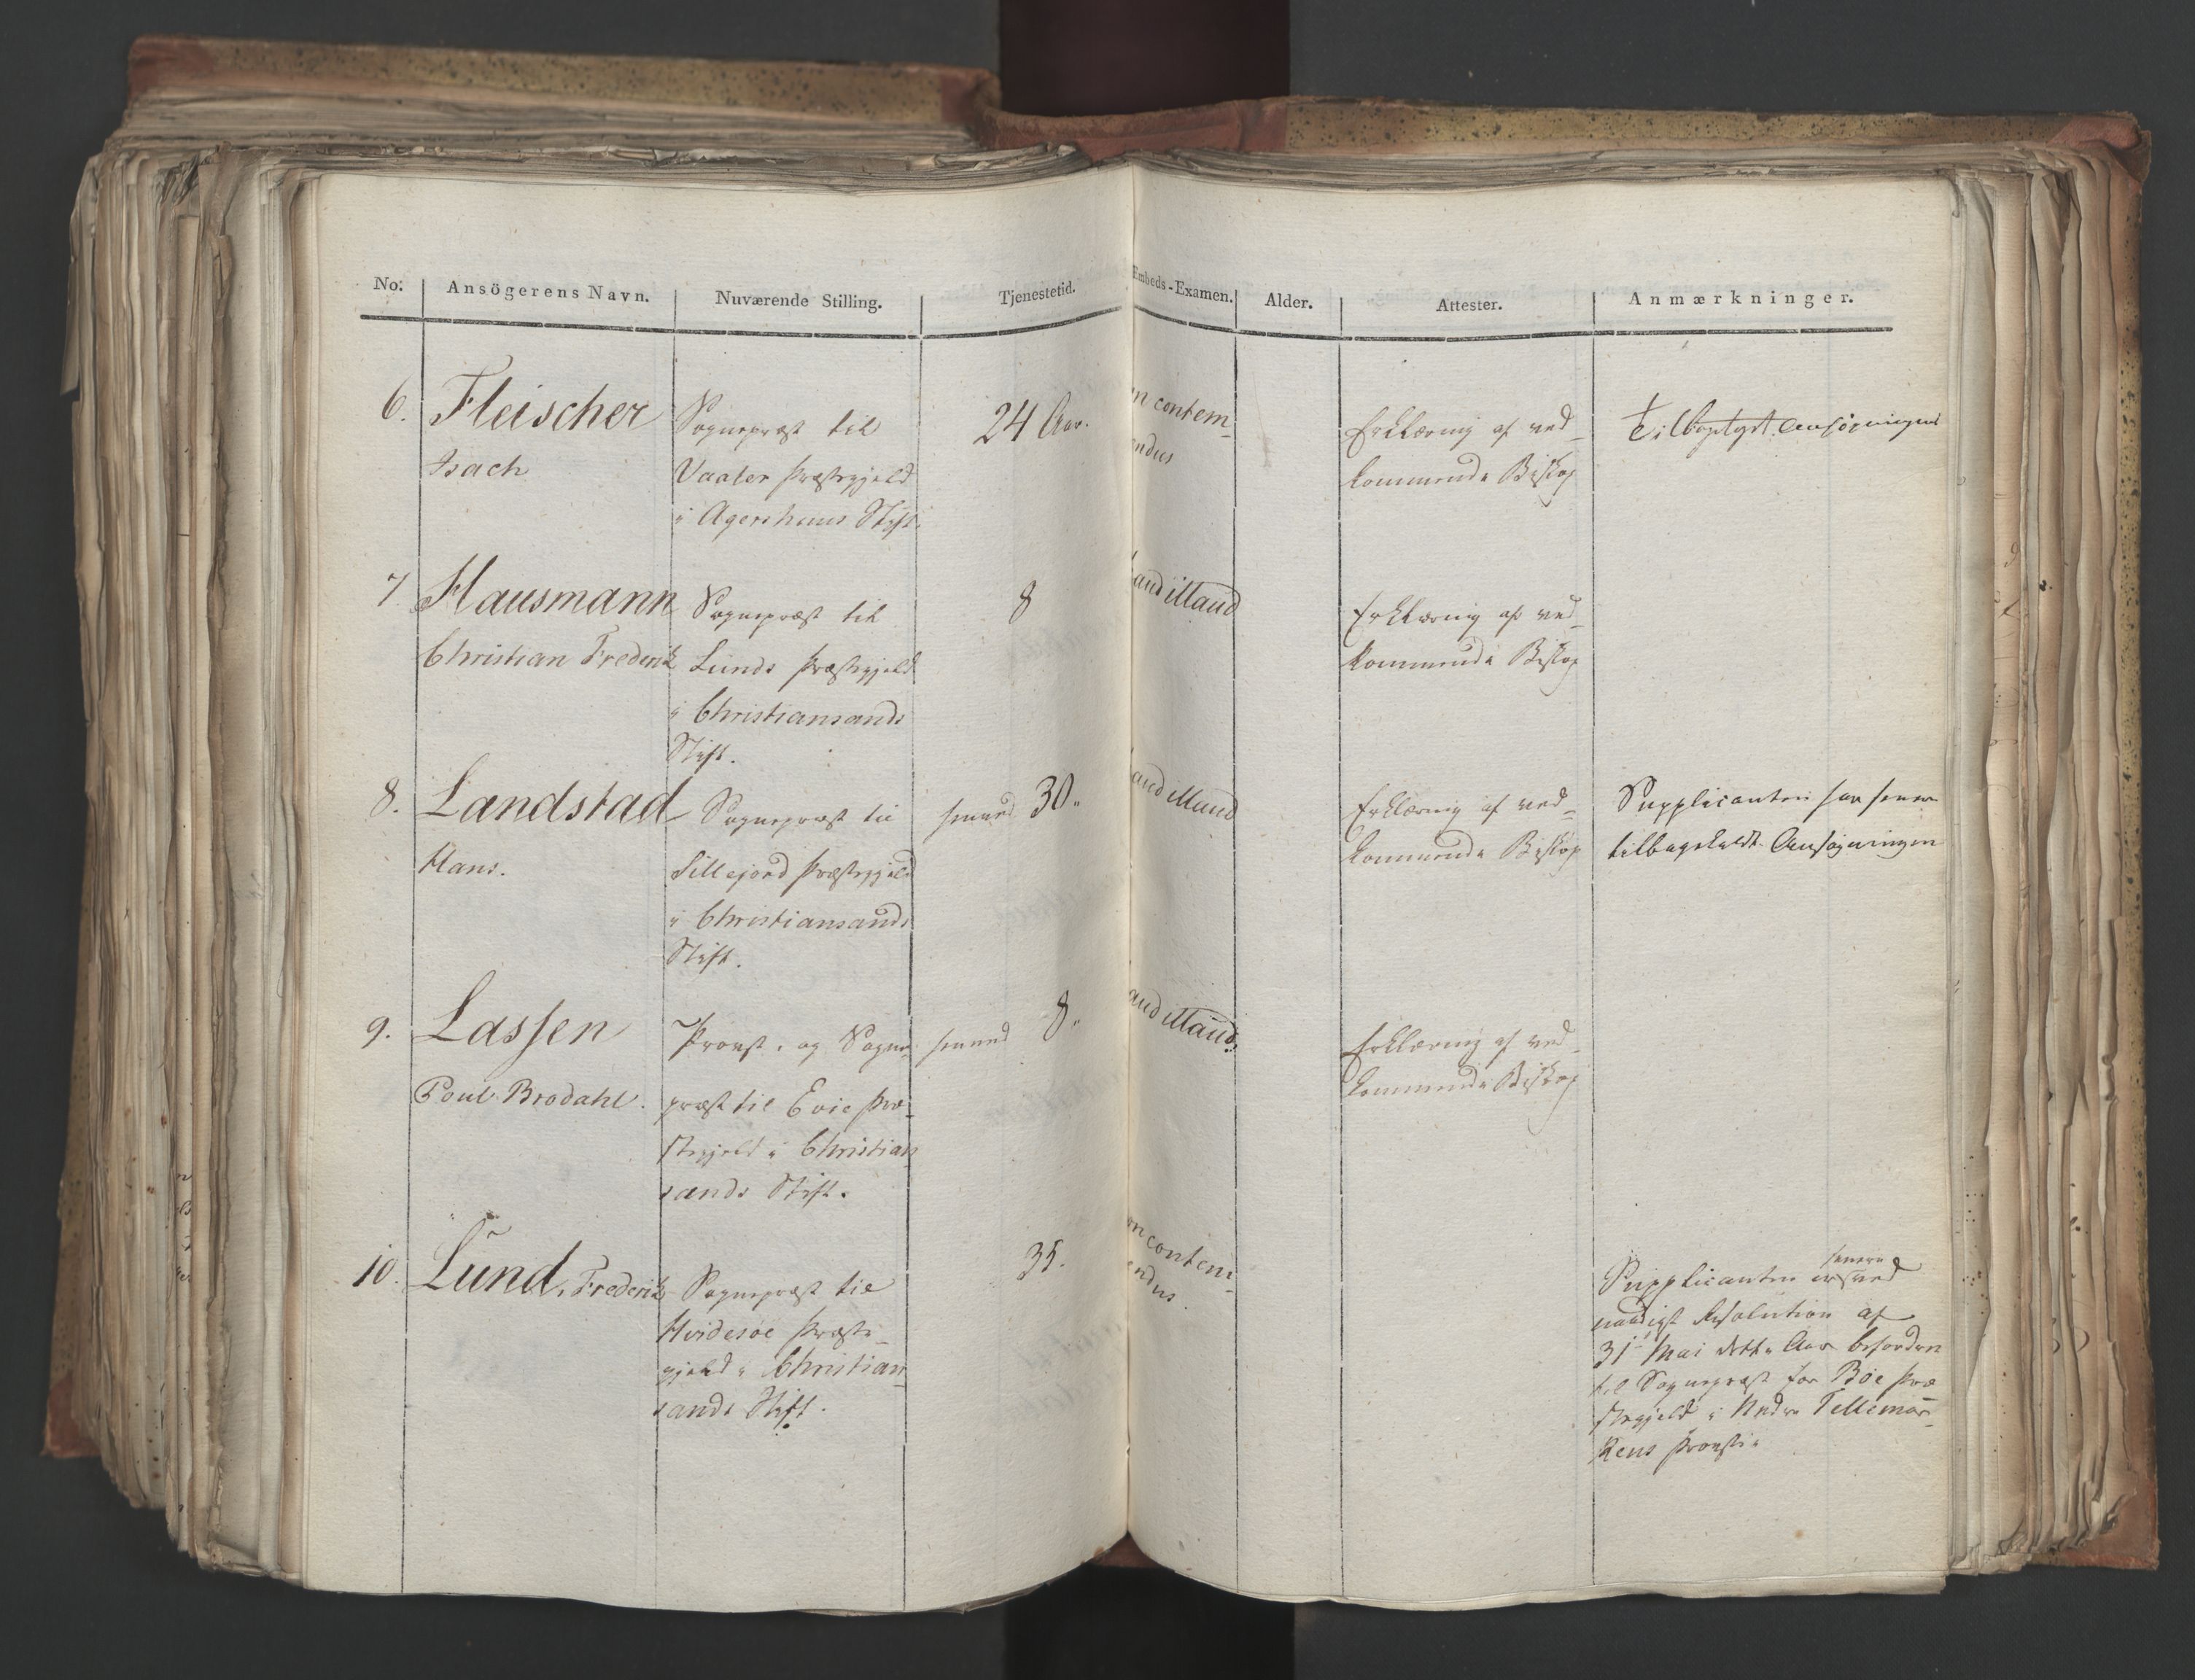 No: Ansögerens Navn. Nuværende Stilling. Tjenestetid. Embeds-Examen. Alder. Attester. Anmærkninger.
6. Fleischer
Isach
Sognepræst til
Vaaler Præstegjeld
i Agershuus Stift.
24 Aar.
n contem-
ndus
Erklæring af ved-
kommende Biskop
Ansögningen
7 Hausmann
Christian Frederik
Sognepræst til
Lunds Præstegjeld
i Christiansands
Stift.
8
aud illaud
Erklæring af ved-
kommende Biskop
8. Landstad
Hans.
Sognepræst til
Sillejord Præstegjeld
i Christiansands
Stift.
30.
aud illaud
Erklæring af ved-
kommende Biskop
Supplicanten har senere
tilbagekaldt Ansøgningen
9. Lassen
Poul Brodahl.
Provst og Sogne-
præst til Evie Præ-
stegjeld i Christian
sands Stift.
8.
aud illaud.
Erklæring af ved-
kommende Biskop
10. Lund, Frederik
Sognepræst til
Hvidesøe Præste-
gjeld i Christian-
sands Stift.
35.
n contem-
endus.
Supplicanten er senere ved
naadigst Resolution af
31 Mai dette Aar befordret
til Sognepræst for Böe Præ
stegjeld i Nedre Tellemar-
kens Provstie